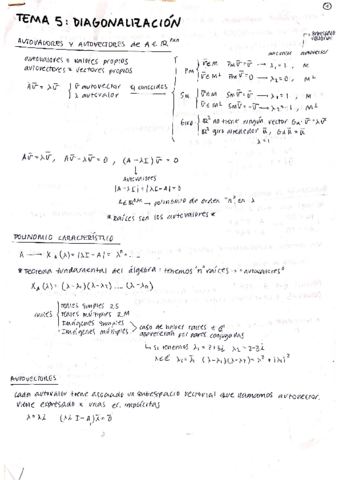 TEMA 5: DIAGONALIZACIÓN
AUTOVALORES Y AUTOVECTORES de A ∈ ℝⁿˣⁿ
autovalores = valores propios
autovectores = vectores propios
Av̄ = λv̄ { v̄ autovector λ autovalor } conocidos
PM { v̄∈M PMv̄ = v̄ → λ₁ = 1, M
v̄∈M⊥ PMv̄ = 0 → λ₂ = 0, M⊥
SM { v̄∈M SMv̄ = v̄ → λ₁ = 1, M
v̄∈M⊥ SMv̄ = -v̄ → λ₂ = -1, M⊥
Giro { ℝ² no tiene ningún vector Gα·v̄ = λv̄
ℝ³ giro alrededor ū, Gū ū = ū
λ = 1
Av̄ = λv̄, Av̄ - λv̄ = 0, (A - λI)v̄ = 0
↓
autovalores
|A - λI| = |λI - A| = 0
→ polinomio de orden "n" en λ
* Raíces son los autovalores *
POLINOMIO CARACTERÍSTICO
A → Xₐ(λ) = |λI - A| = λⁿ...
* Teorema fundamental del álgebra: tenemos "n" raíces → "autovalores"
Xₐ(λ) = (λ - λ₁)(λ - λ₂) .... (λ - λₙ)
raíces { reales simples
reales múltiples
Imaginarias simples
Imaginarias múltiples } caso de haber raíces ∈ ℂ aparecerían por pares conjugadas
↳ si tenemos λ₁ = 2+3i λ₂ = 2-3i
AUTOVECTORES
cada autovalor tiene asociado un subespacio vectorial que llamamos autovector.
viene expresado x unas ec. implícitas
λ = λi (λi I - A)v̄ = 0̄